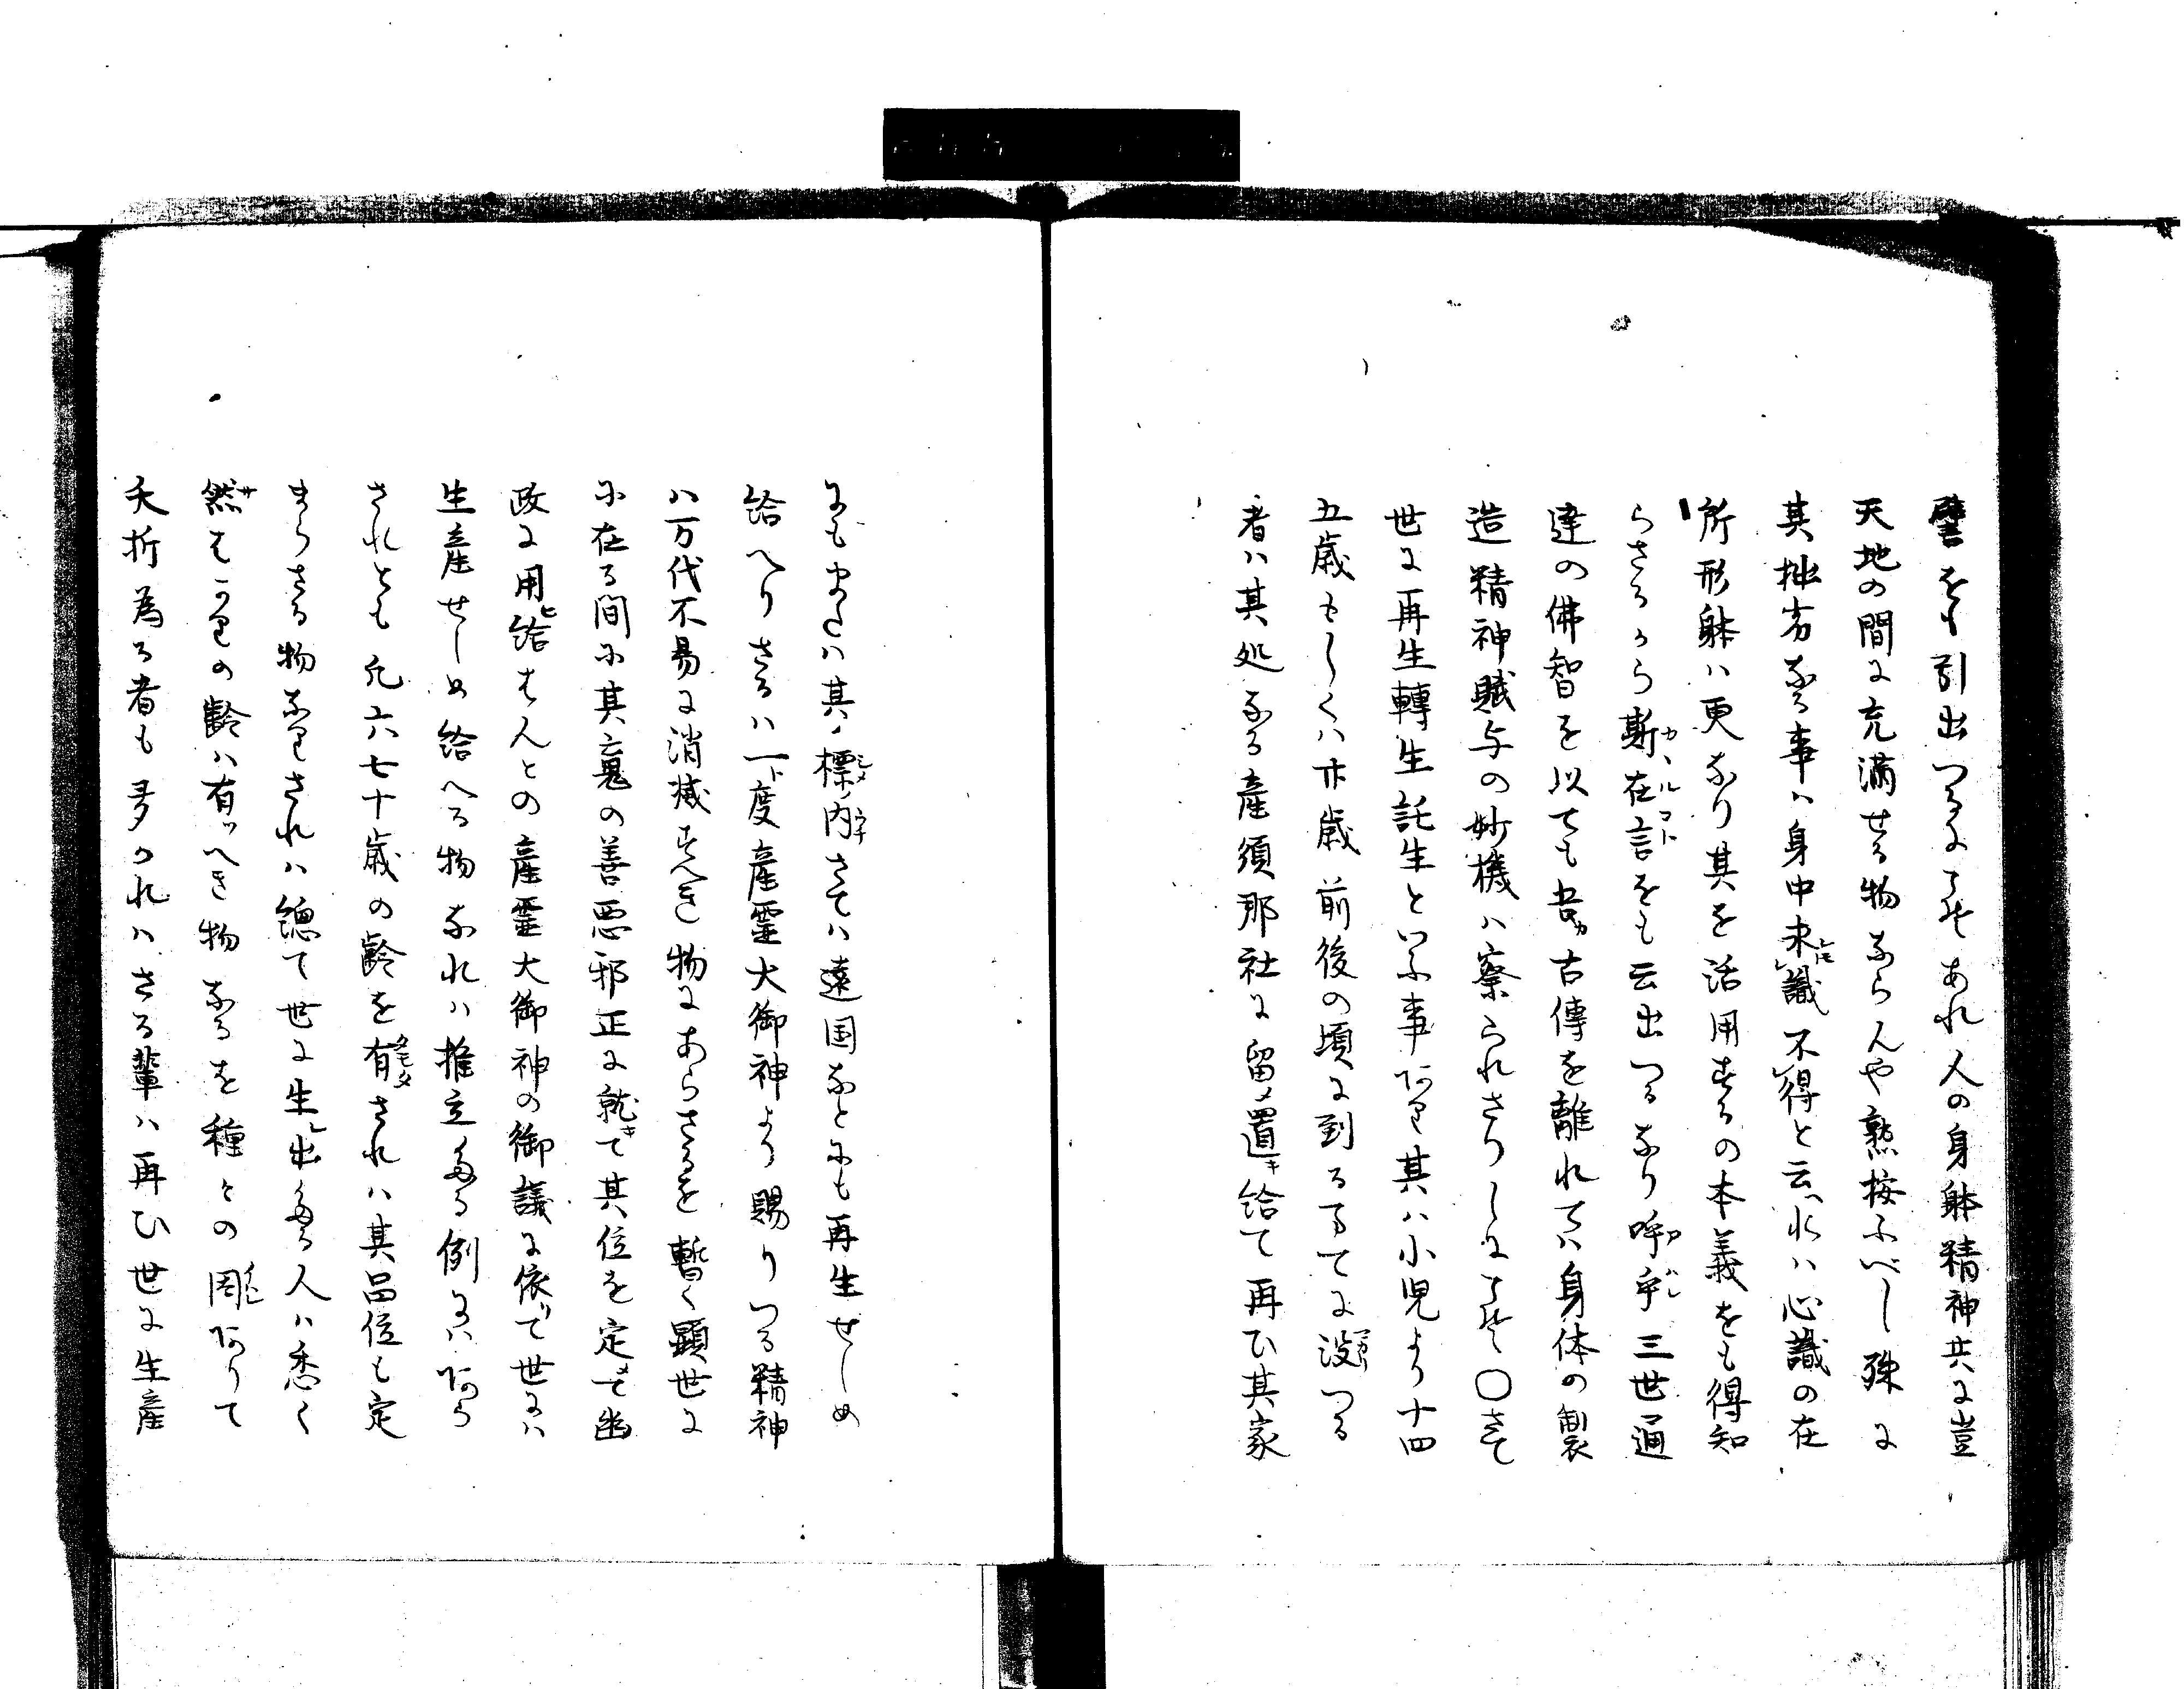 譬をも引出つるにこそあれ人の身躰精神共に豈
天地の間に充満せる物ならんや熟按ふべし殊に
其拙劣なる事ハ身中未識不得と云れハ心識の在
所形躰ハ更なり其を活用するの本義をも得知
らさるから斯在言をも云出つるなり呼乎三世通
達の佛智を以ても吾カ古傳を離れてハ身体の製
造精神賦与の妙機ハ察られさりしにこそ〇さて
世に再生轉生託生といふ事あり其ハ小児より十四
五歳もしくハ廿歳前後の頃に到るまてに没つる
者ハ其処なる産須那社に留メ置キ給て再ひ其家
にもまたハ其標ノ内さてハ遠国なとにも再生せしめ
給へりさるハ一ト度産霊大御神より賜りつる精神
ハ万代不易に消滅すへき物にあらさるを暫く顕世に
に在る間に其霊の善悪邪正に就キて其位を定メて幽
政に用ヒ給はんとの産霊大御神の御議に依リて世にハ
生産せしめ給へる物なれハ推立たる例にハあら
されとも凡六七十歳の齢を有されハ其品位も定
まらさる物なりされハ總て世に生レ出たる人ハ悉く
然はかりの齢ハ有ツへき物なるを種々の 有りて
夭折為る者も多かれハさる輩ハ再ひ世に生産